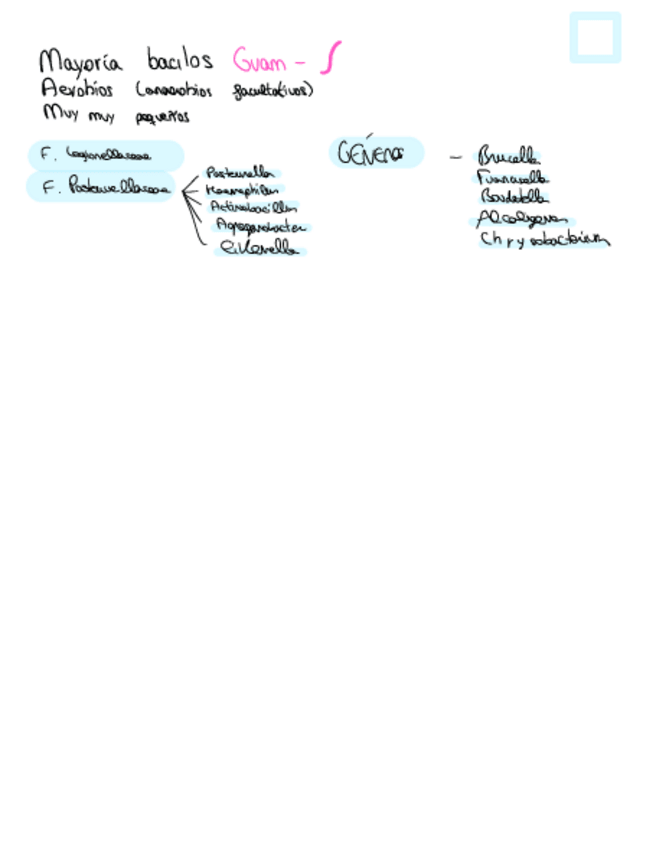 Mayoría bacilos Gram -
Aerobios (anaerobios facultativos)
Muy muy pequeños
F. Legionellaceae
F. Pasteurellaceae
Pasteurella
Haemophilus
Actinobacillus
Aggregatibacter
Eikenella
GÉNERO - Brucella
Francisella
Bordetella
Alcaligenes
Chryseobacterium